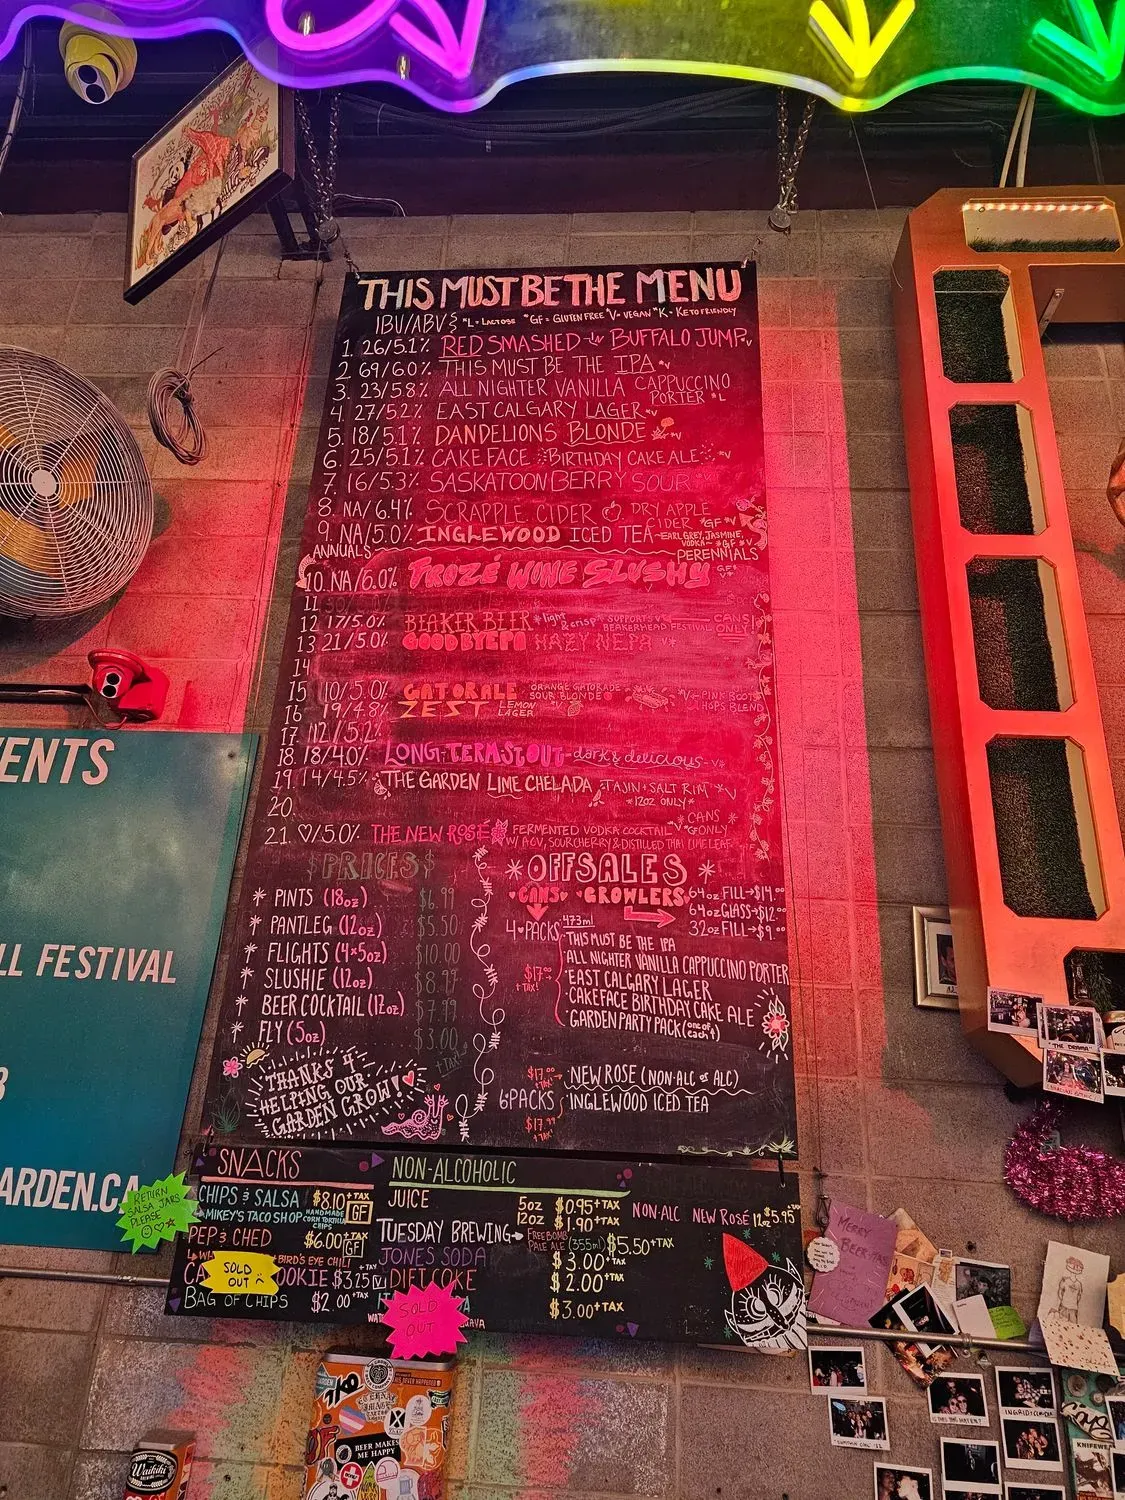 THIS MUST BE THE MENU
IBU/ABV *L = LACTOSE *GF = GLUTEN FREE *V = VEGAN *K = KETO FRIENDLY
1. 26/5.1% RED SMASHED IN BUFFALO JUMP *V
2. 69/6.0% THIS MUST BE THE IPA *V
3. 23/5.8% ALL NIGHTER VANILLA CAPPUCCINO
PORTER *L
4. 27/5.2% EAST CALGARY LAGER *V
5. 18/5.1% DANDELIONS BLONDE *V
6. 25/5.1 CAKE FACE BIRTHDAY CAKE ALE *V
7. 16/5.3% SASKATOON BERRY SOUR
8. NA/6.4% SCRAPPLE CIDER DRY APPLE
CIDER *GF *V
9. NA/5.0% INGLEWOOD ICED TEA - EARL GREY, JASMINE,
VODKA - *GF *V
ANNUALS
PERENNIALS
10. NA/6.0% FROZÉ WINE SLUSHY GF*
V*
11
12 17/5.0% BEAKER BEER *light & crisp* SUPPORTS BEAKERHEAD FESTIVAL CANS ONLY!
13 21/5.0% GOOD BYEPA HAZY NEPA V*
14
15 110/5.0% GATORALE ORANGE GATORADE
SOUR BLONDE PINK BOOTS
HOPS BLEND
16 19/4.8% ZEST LEMON
LAGER
17 12/5.2%
18. 18/4.0% LONG-TERM STOUT - dark & delicious - V*
19. 14/4.5% THE GARDEN LIME CHELADA TAJIN + SALT RIM *V
*12OZ ONLY*
20.
21. ♡/5.0% THE NEW ROSÉ FERMENTED VODKA COCKTAIL *V *GF
*CANS*
ONLY
W/ ACV, SOUR CHERRY & DISTILLED THAI LIME LEAF
$PRICES$
* PINTS (18oz) $6.99
* PANTLEG (12oz) $5.50
* FLIGHTS (4×5oz) $10.00
* SLUSHIE (12oz) $8.99
* BEER COCKTAIL (12oz) $7.99
* FLY (5oz) $3.00
+TAX
THANKS 4
HELPING OUR
GARDEN GROW!
* OFFSALES *
♥CANS♥ GROWLERS
64oz FILL→$14.00
64oz GLASS→$12.00
32oz FILL→$9.00
4 PACKS 473ml
$17.00
+TAX!
THIS MUST BE THE IPA
ALL NIGHTER VANILLA CAPPUCCINO PORTER
EAST CALGARY LAGER
CAKEFACE BIRTHDAY CAKE ALE
GARDEN PARTY PACK (one of each!)
6PACKS
$17.00
+TAX
NEW ROSE (NON-ALC or ALC)
INGLEWOOD ICED TEA
$17.99
+TAX
SNACKS
CHIPS & SALSA $8.10+TAX
MIKEY'S TACO SHOP HANDMADE CORN TORTILLA CHIPS GF
PEP & CHED $6.00+TAX
GF
BIRD'S EYE CHILI
CA OOKIE $3.25+TAX V
SOLD
OUT
BAG OF CHIPS $2.00+TAX
NON-ALCOHOLIC
JUICE 5oz $0.95+TAX
12oz $1.90+TAX
NON-ALC NEW ROSÉ 12oz $5.95
TUESDAY BREWING→ FREEBOMB
PALE ALE (355ml) $5.50+TAX
JONES SODA $3.00+TAX
DIET COKE $2.00+TAX
$3.00+TAX
SOLD
OUT
RETURN
SALSA JARS
PLEASE
ENTS
LL FESTIVAL
3
ARDEN.CA
MERRY
BEER-MAS
"THE DRAMA"
INGRID + CLAUDIA
BEER MAKES
ME HAPPY
Waikiki
KNIFEWE